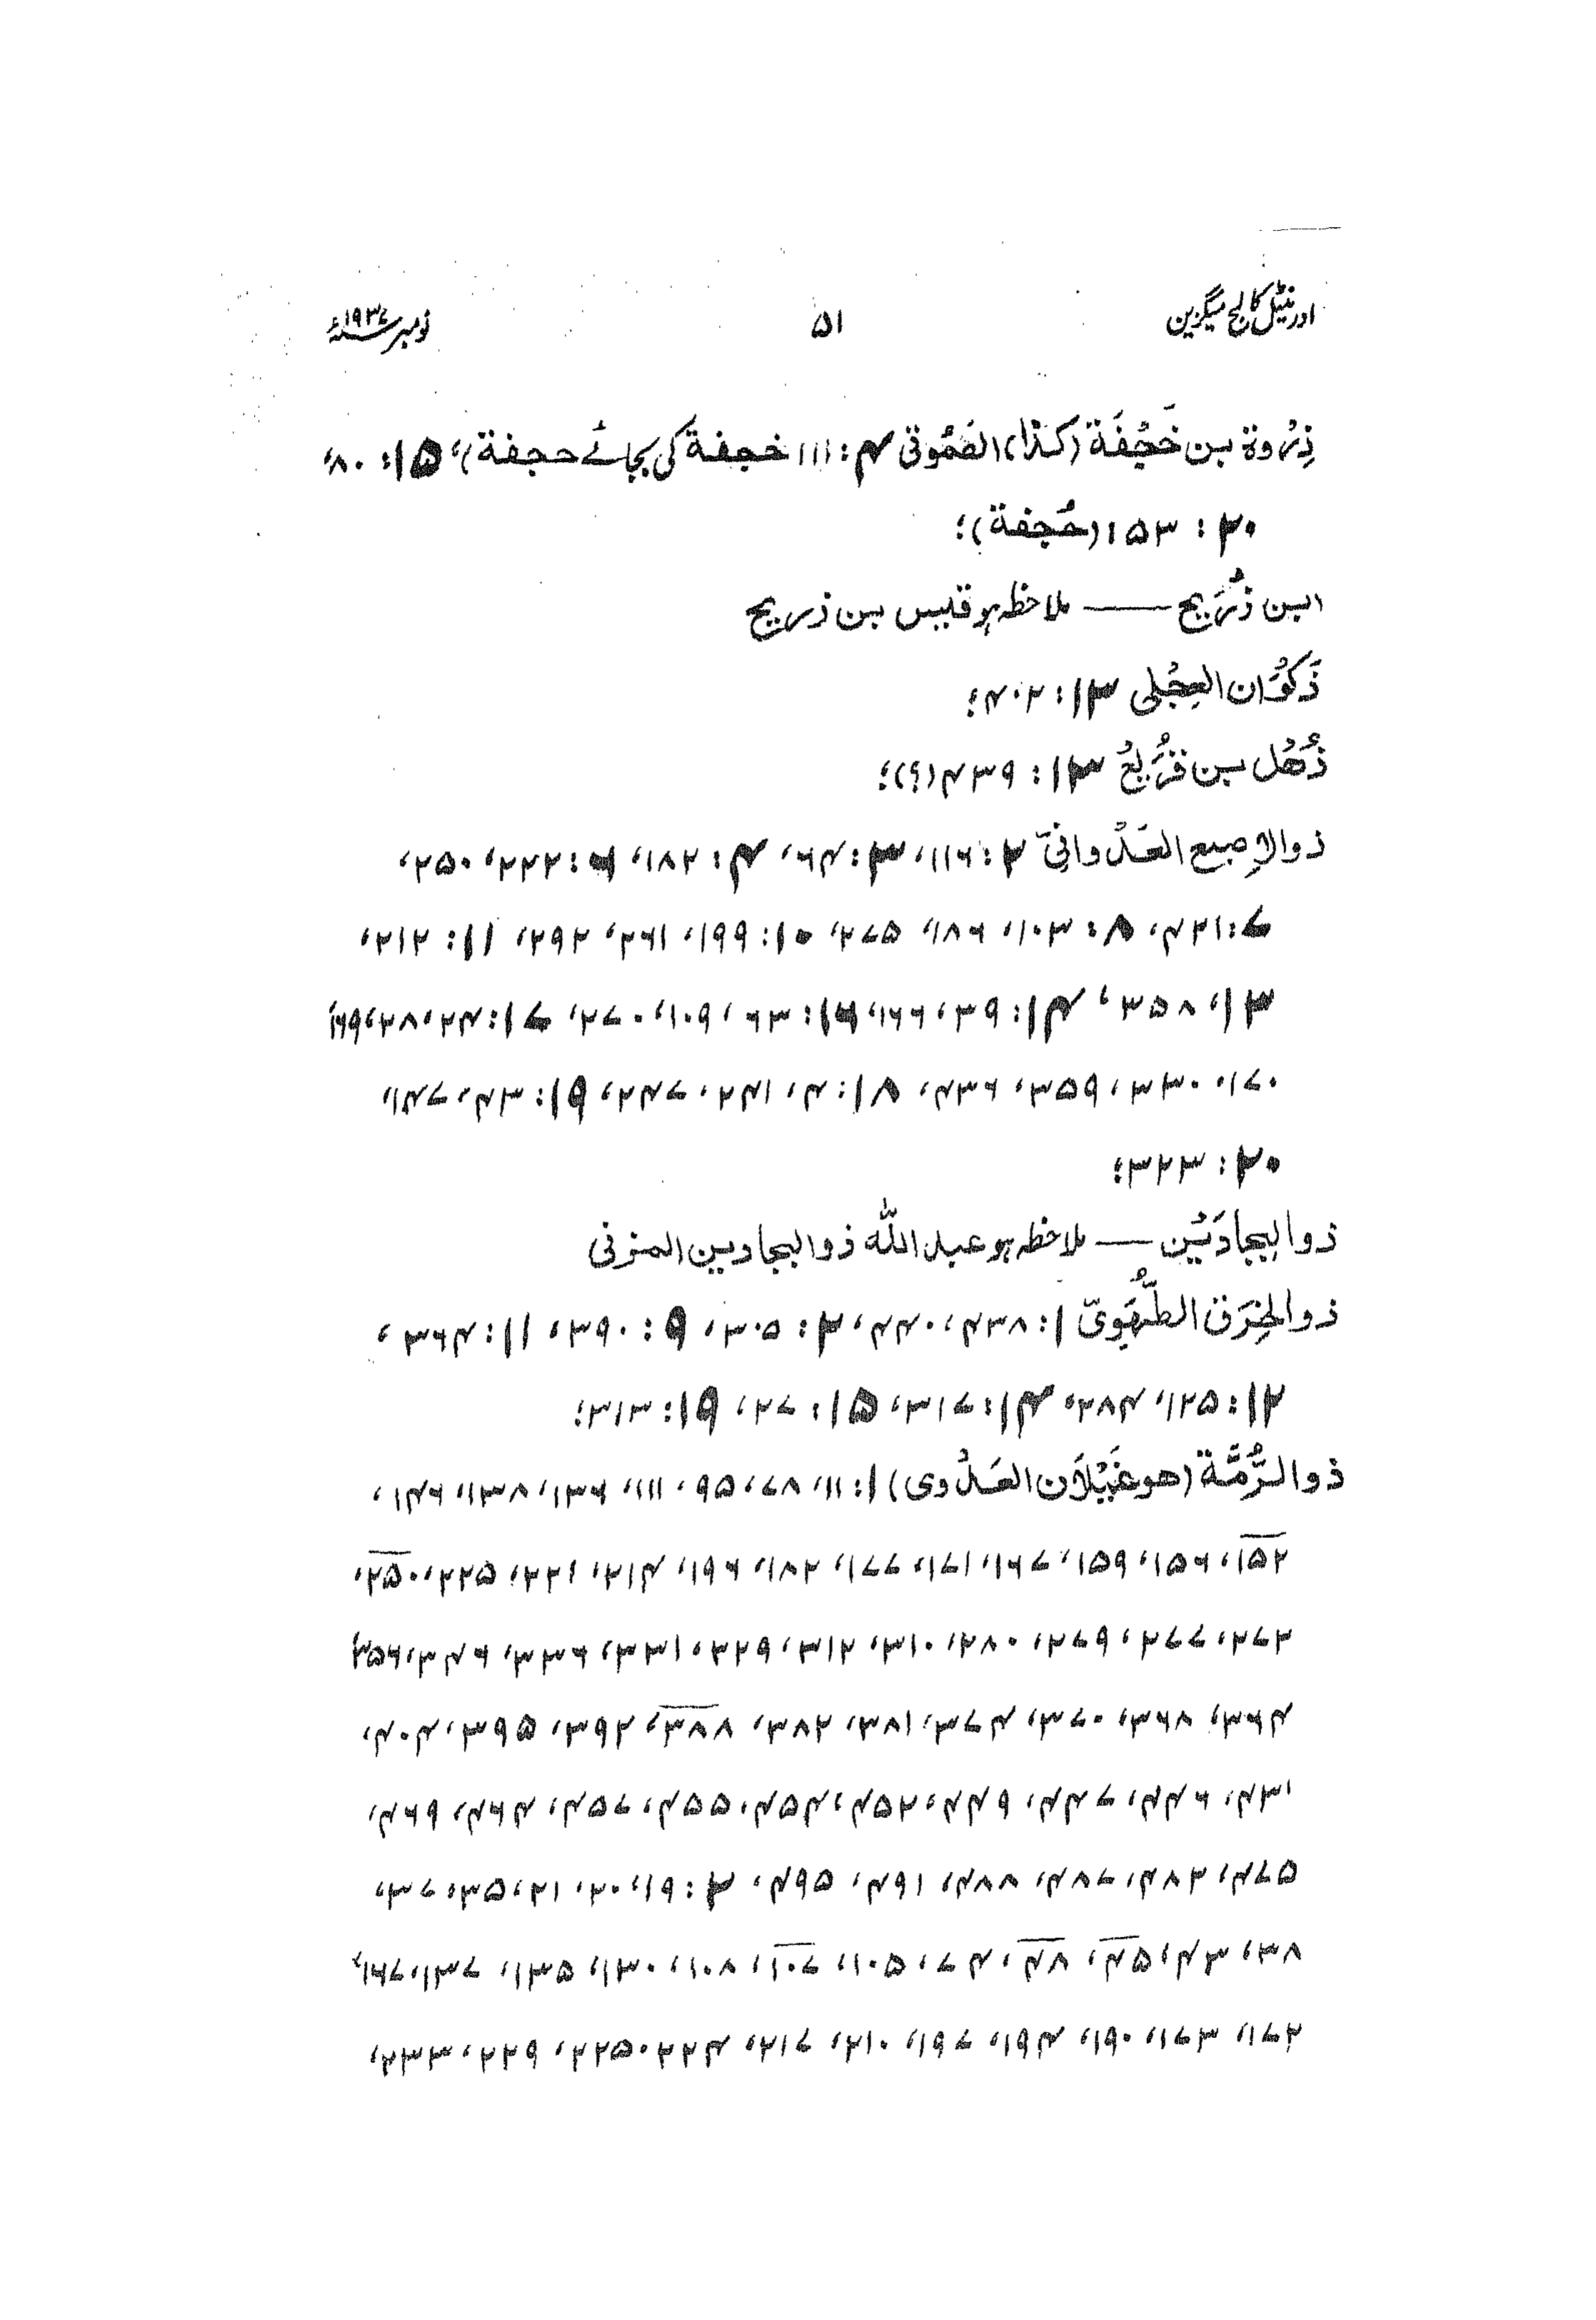 اورینٹیل کالج میگزین ۵۱ نومبر سنہ ۱۹۳۷ء
ذِرْوة بن خَجْفَة (کذا) الصَمُوتی ۴: ۱۱۱ خجفة کی بجائے حجفة)، ۱۵: ۸۰،
۲۰: ۱۵۳ (حُجفة)؛
ابن ذُرَیح —— ملاحظہ ہو قیس بن ذریح
ذَکْوَان العِجْلی ۱۳: ۴۰۲؛
ذُهْل بن قُرَیعْ ۱۳: ۴۳۹ (؟)؛
ذوالاِصبع العَدْوانِیّ ۲: ۱۱۶، ۳: ۶۴، ۴: ۱۸۲، ۶: ۲۲۲، ۲۵۰،
۷: ۴۲۱، ۸: ۱۰۳، ۱۸۶، ۲۷۵، ۱۰: ۱۹۹، ۲۶۱، ۲۹۲، ۱۱: ۲۱۲،
۱۳، ۳۵۸، ۱۴: ۳۹، ۱۶۶، ۱۶: ۶۳، ۱۰۹، ۲۷۰، ۱۷: ۲۴، ۲۸، ۱۶۹،
۱۷۰، ۳۳۰، ۳۵۹، ۴۳۶، ۱۸: ۴، ۲۴۱، ۲۴۷، ۱۹: ۴۳، ۱۴۷،
۲۰: ۳۲۳؛
ذوالبِجادَیْن —— ملاحظہ ہو عبد اللّٰه ذوالبجادین المزنی
ذوالخِرَق الطُّهَوِیّ ۱: ۴۳۸، ۴۴۰، ۲: ۳۰۵، ۹: ۳۹۰، ۱۱: ۳۶۴،
۱۲: ۱۲۵، ۲۸۴، ۱۴: ۳۱۷، ۱۵: ۲۷، ۱۹: ۳۱۳؛
ذوالرُّمَّة (هو غَیْلَان العَدْوی) ۱: ۱۱، ۷۸، ۹۵، ۱۱۱، ۱۳۶، ۱۳۸، ۱۴۶،
۱۵۲، ۱۵۶، ۱۵۹، ۱۶۷، ۱۷۱، ۱۷۷، ۱۸۲، ۱۹۶، ۲۱۴، ۲۲۱، ۲۲۵، ۲۵۰،
۲۷۲، ۲۷۷، ۲۷۹، ۲۸۰، ۳۱۰، ۳۱۲، ۳۲۹، ۳۳۱، ۳۳۶، ۳۴۶، ۳۵۶
۳۶۴، ۳۶۸، ۳۷۰، ۳۷۴، ۳۸۱، ۳۸۲، ۳۸۸، ۳۹۲، ۳۹۵، ۴۰۴،
۴۳۱، ۴۴۶، ۴۴۷، ۴۴۹، ۴۵۲، ۴۵۴، ۴۵۵، ۴۵۷، ۴۶۴، ۴۶۹،
۴۷۵، ۴۸۲، ۴۸۷، ۴۸۸، ۴۹۱، ۴۹۵، ۲: ۱۹، ۲۰، ۲۱، ۳۵، ۳۷،
۳۸، ۴۳، ۴۵، ۴۸، ۷۴، ۱۰۵، ۱۰۷، ۱۰۸، ۱۳۰، ۱۳۵، ۱۳۷، ۱۶۷،
۱۷۲، ۱۷۳، ۱۹۰، ۱۹۴، ۱۹۷، ۲۱۰، ۲۱۷، ۲۲۴، ۲۲۵، ۲۲۹، ۲۳۳،